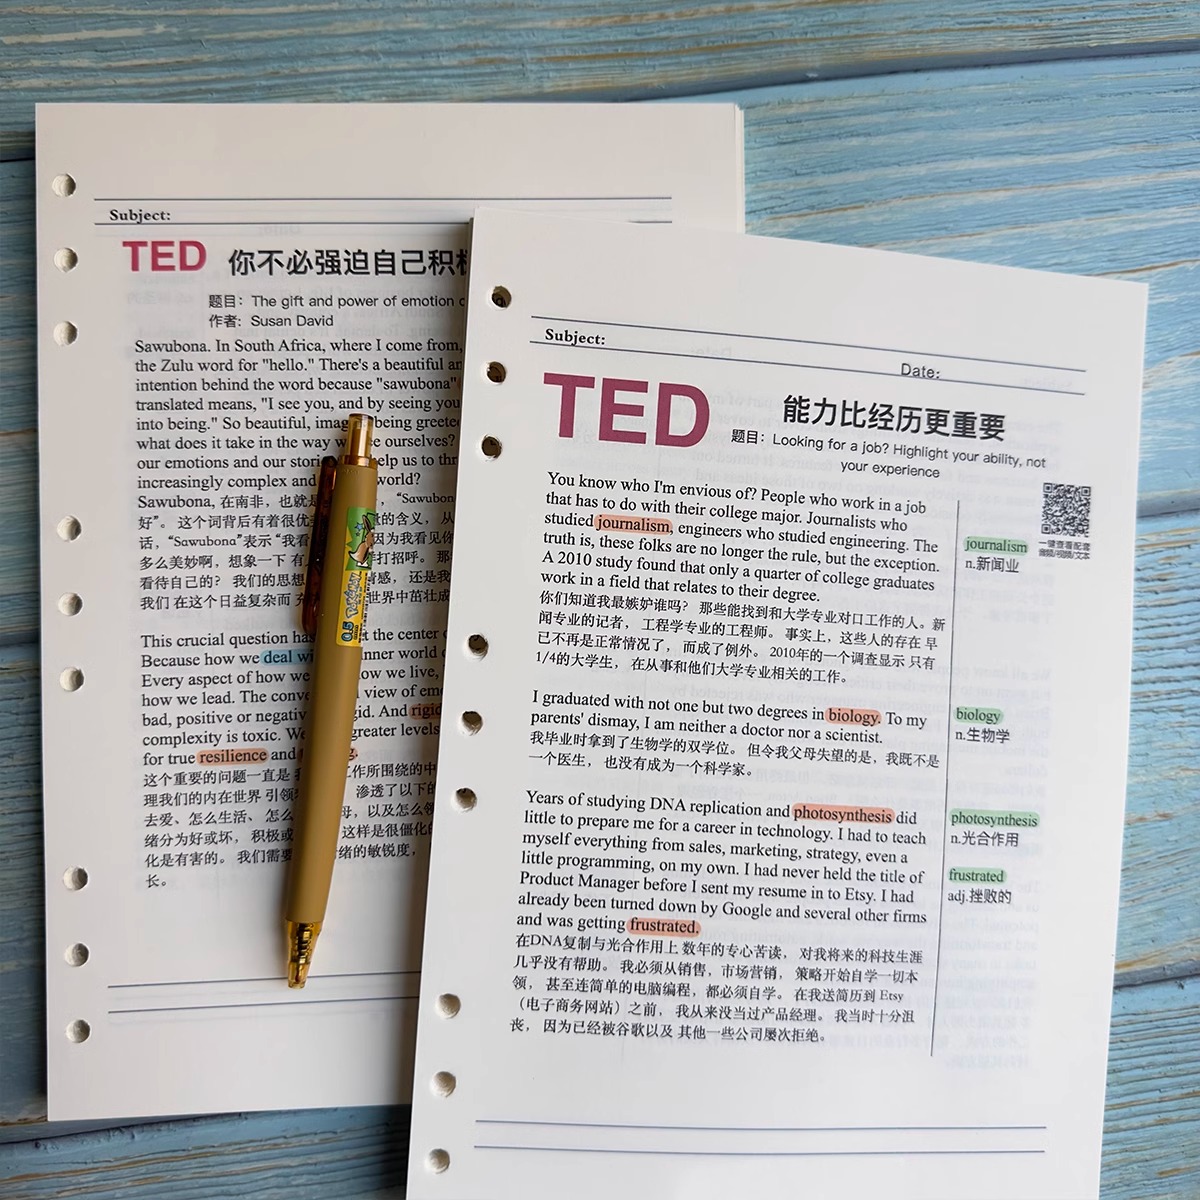 Subject:
TED 你不必强迫自己积极
题目：The gift and power of emotion
作者：Susan David
Sawubona. In South Africa, where I come from,
the Zulu word for "hello." There's a beautiful
intention behind the word because "sawubona"
translated means, "I see you, and by seeing you
into being." So beautiful, being greeted
what does it take in the way we see ourselves?
our emotions and our help us to
increasingly complex and world?
Sawubona, 在南非，也就是 ，“Sawubona
好”。 这个词背后有着很优美 的含义， 从
话，“Sawubona”表示“我看 因为我看见你
多么美妙啊，想象一下 有 打招呼。 那
看待自己的？ 我们的思想 情感， 还是我
我们 在这个日益复杂而 充 世界中茁壮成
This crucial question has at the center
Because how we deal with inner world
Every aspect of how we how we live,
how we lead. The view of
bad, positive or negative, rigid. And rigid
complexity is toxic. We greater levels
for true resilience and
这个重要的问题一直是 我 工作所围绕的中
理我们的内在世界 引领 渗透了以下的
去爱、怎么生活、 怎么 母，以及怎么
绪分为好或坏， 积极或 这样是很僵化的
化是有害的。 我们需要 情绪的敏锐度，
长。
0.5
Subject:
Date:
TED 能力比经历更重要
题目：Looking for a job? Highlight your ability, not
your experience
You know who I'm envious of? People who work in a job
that has to do with their college major. Journalists who
studied journalism, engineers who studied engineering. The
truth is, these folks are no longer the rule, but the exception.
A 2010 study found that only a quarter of college graduates
work in a field that relates to their degree.
你们知道我最嫉妒谁吗？ 那些能找到和大学专业对口工作的人。新
闻专业的记者， 工程学专业的工程师。 事实上，这些人的存在 早
已不再是正常情况了， 而成了例外。 2010年的一个调查显示 只有
1/4的大学生， 在从事和他们大学专业相关的工作。
I graduated with not one but two degrees in biology. To my
parents' dismay, I am neither a doctor nor a scientist.
我毕业时拿到了生物学的双学位。 但令我父母失望的是，我既不是
一个医生， 也没有成为一个科学家。
Years of studying DNA replication and photosynthesis did
little to prepare me for a career in technology. I had to teach
myself everything from sales, marketing, strategy, even a
little programming, on my own. I had never held the title of
Product Manager before I sent my resume in to Etsy. I had
already been turned down by Google and several other firms
and was getting frustrated.
在DNA复制与光合作用上 数年的专心苦读， 对我将来的科技生涯
几乎没有帮助。 我必须从销售，市场营销， 策略开始自学一切本
领， 甚至连简单的电脑编程，都必须自学。 在我送简历到 Etsy
（电子商务网站）之前， 我从来没当过产品经理。 我当时十分沮
丧， 因为已经被谷歌以及 其他一些公司屡次拒绝。
一键查看配套
音频/视频/文本
journalism
n.新闻业
biology
n.生物学
photosynthesis
n.光合作用
frustrated
adj.挫败的